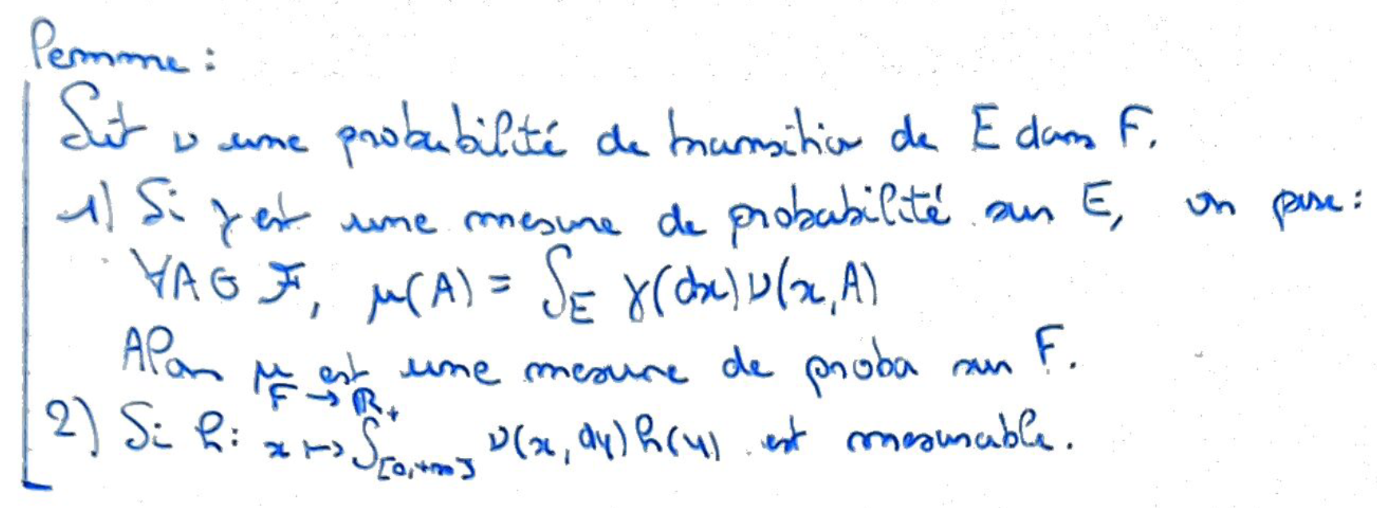 Lemme :
Soit ν une probabilité de transition de E dans F.
1) Si γ est une mesure de probabilité sur E, on pose :
∀A∈ℱ, μ(A) = ∫_E γ(dx)ν(x,A)
Alors μ est une mesure de proba sur F.
2) Si h: F → ℝ₊ x ↦ ∫_[0,+∞] ν(x,dy)h(y) est mesurable.